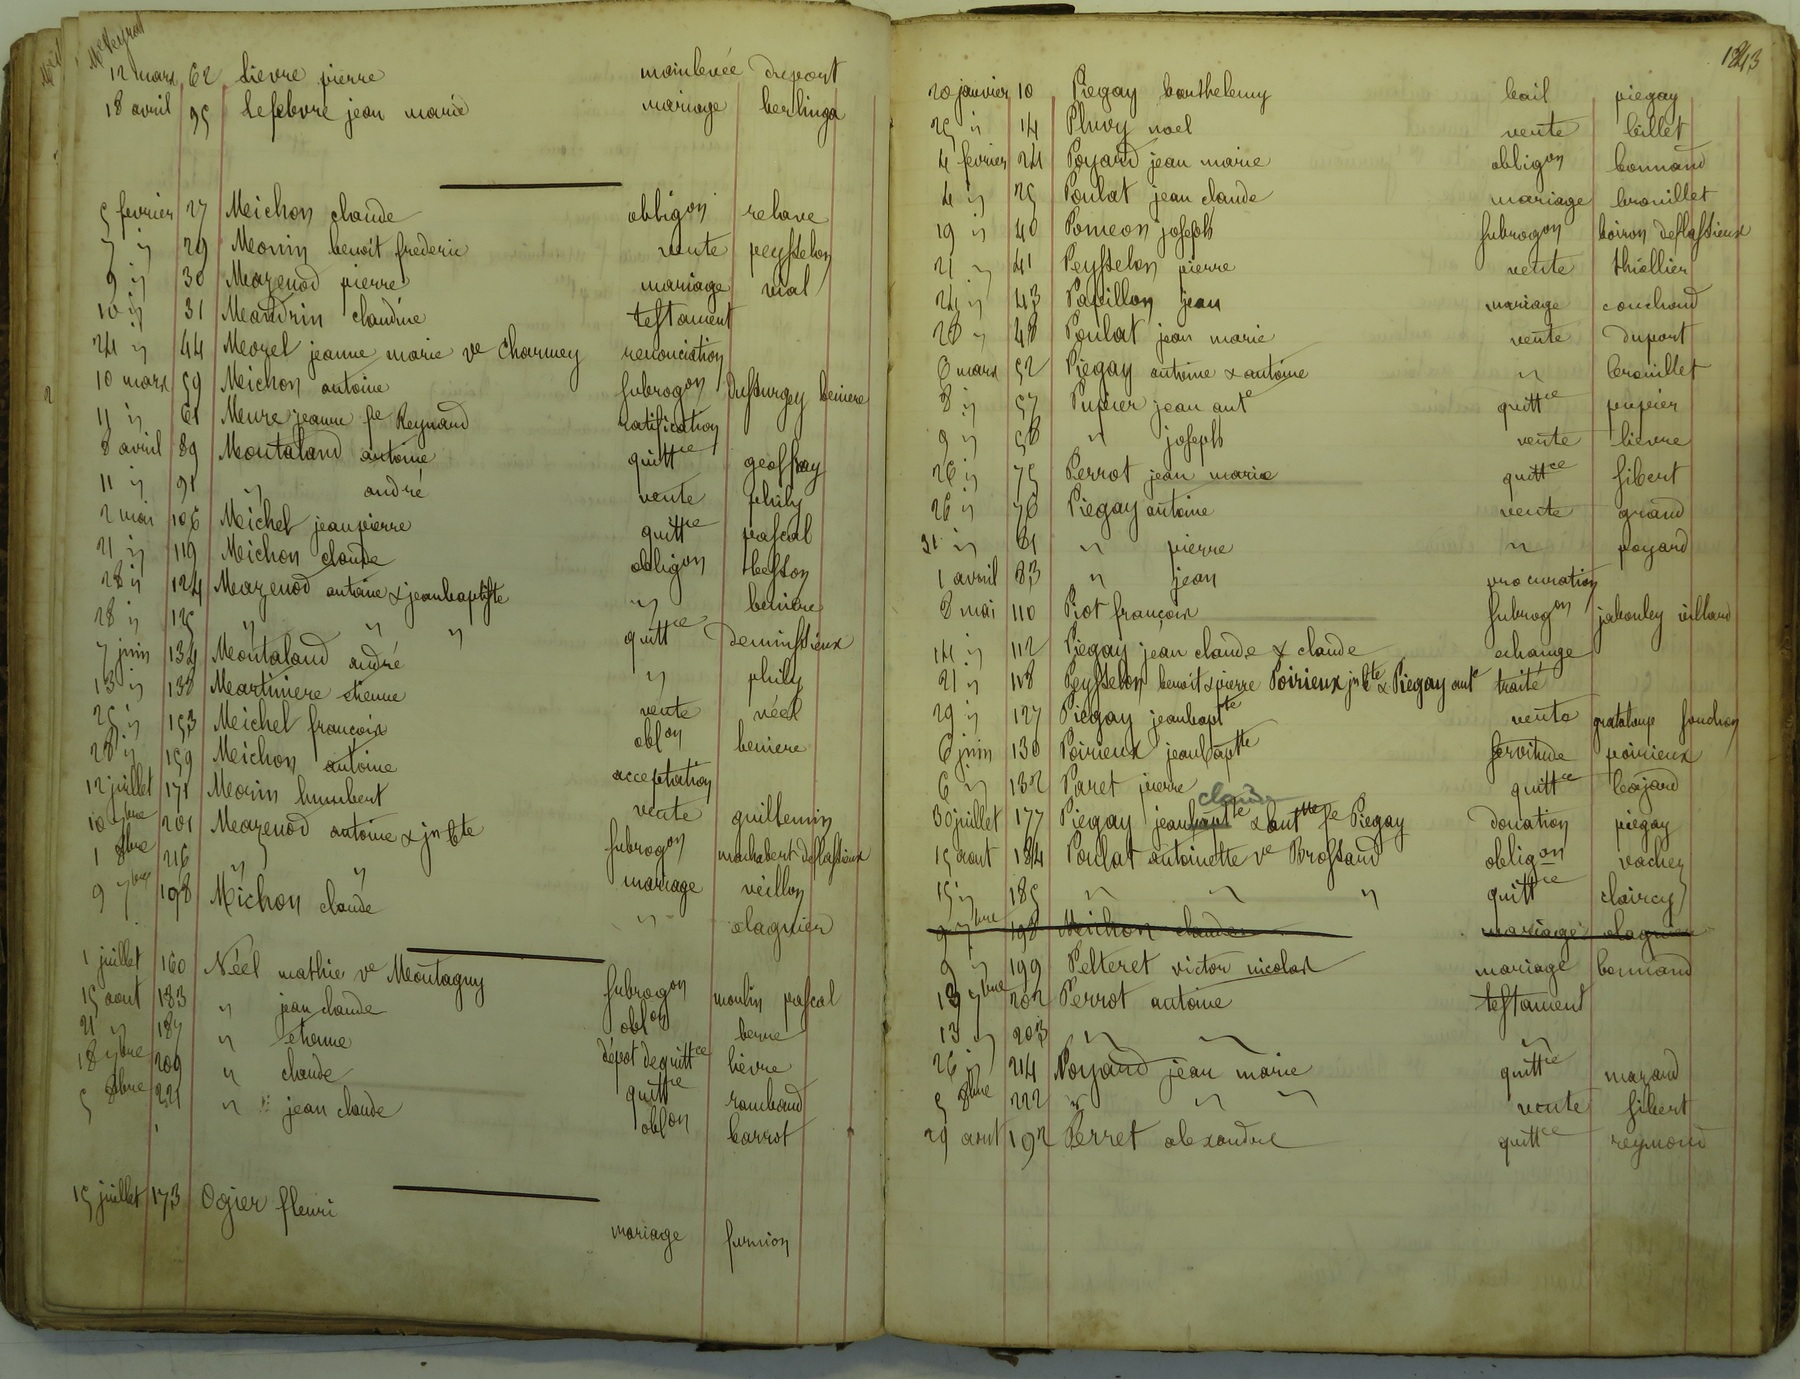 Me Peyrat
12 mars 62 Lievre pierre mainlevée duport
18 avril 95 Lefebvre jean marie mariage berlinga
5 fevrier 27 Michon claude obligon relave
7 " 29 Monin benoit frederic vente peysselon
9 " 30 Mazenod pierre mariage vial
10 " 31 Mandrin claudine testament
24 " 44 Morel jeanne marie ve Charmey renonciation
10 mars 59 Michon antoine subrogon Dussurgey beniere
11 " 61 Mure jeanne fe Reynaud ratification
8 avril 89 Montaland antoine quittce geoffray
11 " 91 " andré vente phily
2 mai 106 Michel jean pierre quittce pascal
21 " 119 Michon claude obligon besson
28 " 124 Mazenod antoine & jeanbaptiste " beniere
28 " 125 " " " quittce Deminssieux
7 juin 134 Montaland andré " phily
13 " 138 Martiniere etienne vente néel
25 " 153 Michel francois oblon beniere
28 " 159 Michon antoine acceptation
12 juillet 171 Monin humbert vente guillemin
10 7bre 201 Mazenod antoine & jn bte subrogon machabert deflassieux
1 8bre 216 " " mariage veillon
9 7bre 198 Michon claude " olagnier
1 juillet 160 Néel mathie ve Montagny subrogon moulin pascal
15 aout 183 " jean claude oblon berne
21 " 187 " etienne dépot de quittce lièvre
18 7bre 209 " claude quittce rambaud
5 8bre 221 " jean claude oblon barrot
15 juillet 173 Ogier fleuri mariage furnion
1843
20 janvier 10 Piegay barthelemy bail piegay
25 " 14 Pluvy noel vente billet
4 fevrier 24 Poyard jean marie obligon bonnand
4 " 25 Poulat jean claude mariage brouillet
19 " 40 Pomeon joseph subrogon boiron deflassieux
21 " 41 Peysselon pierre vente thiollier
24 " 43 Papillon jean mariage couchoud
28 " 48 Poulat jean marie vente duport
6 mars 52 Piegay antoine & antoine " brouillet
8 " 57 Pupier jean ante quittce pupier
9 " 58 " joseph vente lievre
26 " 75 Perrot jean marie quittce gibert
26 " 76 Piegay antoine vente grand
31 " 81 " pierre " poyard
1 avril 83 " jean procuration
8 mai 110 Piot françois subrogon jabouley villard
14 " 112 Piegay jean claude & claude echange
21 " 118 Peysselon benoit & pierre Poirieux jn bte & Piegay ante traité
29 " 127 Piegay jeanbaptte vente grataloup souchon
6 juin 130 Poirieux jeanbaptte servitude poirieux
6 " 132 Paret pierre quittce bajard
claude
30 juillet 177 Piegay jeanbaptte & anttte fe Piegay donation piegay
15 aout 184 Poulat antoinette ve Brossard obligon vachez
15 " 185 " " " quittce claircy
9 7bre 198 Michon claude mariage olagnier
9 " 199 Pelteret victor nicolas mariage bonnand
13 7bre 202 Perrot antoine testament
13 " 203 " " "
26 " 214 Poyard jean marie quittce mazard
5 8bre 222 " " " vente gibert
29 aout 192 Perret alexandre quittce reymond